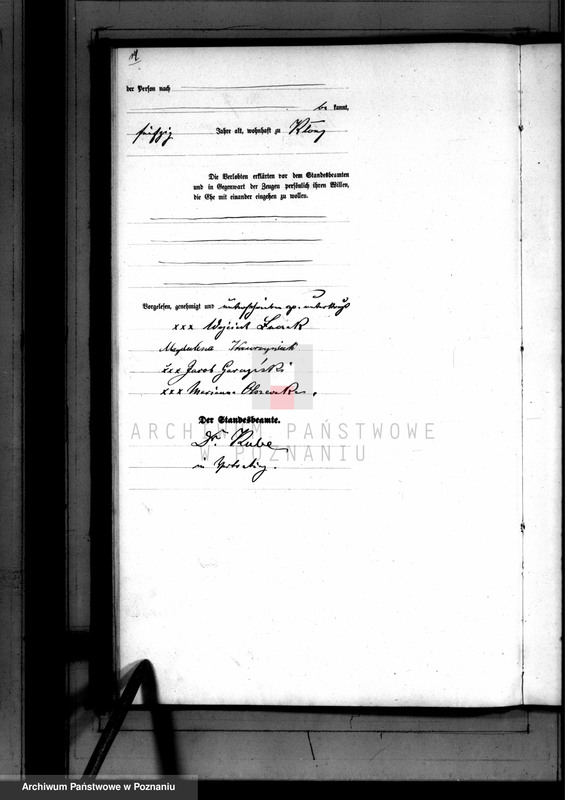 der Person nach
be kannt,
fünfzig Jahre alt, wohnhaft zu Klony
Die Verlobten erklärten vor dem Standesbeamten
und in Gegenwart der Zeugen persönlich ihren Willen,
die Ehe mit einander eingehen zu wollen.
Vorgelesen, genehmigt und unterschrieben
xxx Wojciech
Magdalena
xxx Jacob
xxx Marianna
Der Standesbeamte.
Dr. Kube
in
ARCHIWUM PAŃSTWOWE
W POZNANIU
Archiwum Państwowe w Poznaniu